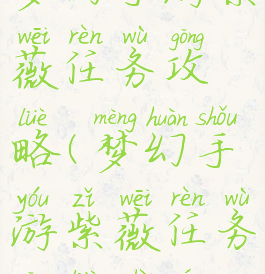 wēi rèn wù gōng
薇任务攻
lüè mèng huàn shǒu
略(梦幻手
yóu zǐ wēi rèn wù
游紫薇任务